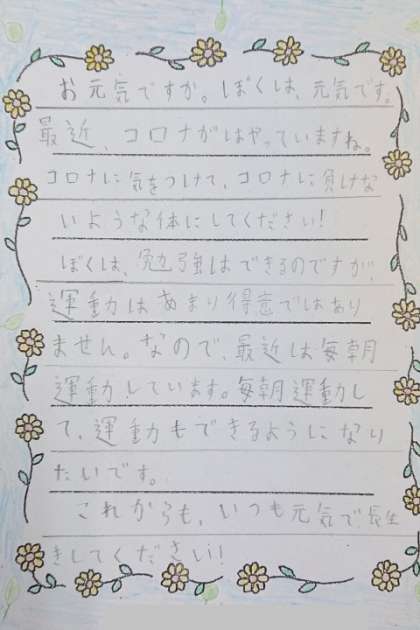 お元気ですか。ぼくは、元気です。
最近、コロナがはやっていますね。
コロナに気をつけて、コロナに負けな
いような体にしてください!
ぼくは、勉強はできるのですが、
運動はあまり得意ではあり
ません。なので、最近は毎朝
運動しています。毎朝運動し
て、運動もできるようになり
たいです。
これからも、いつも元気で長生
きしてください!